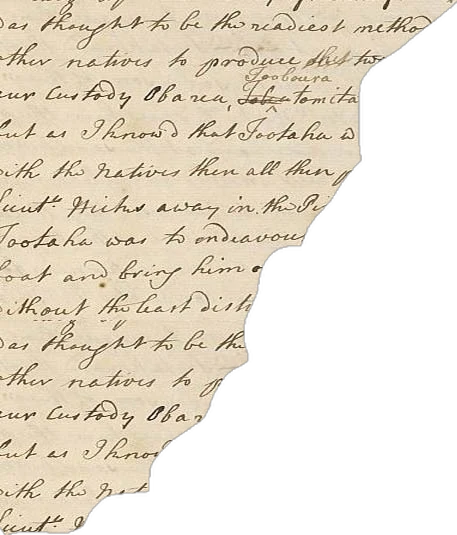 as thought to be the readiest method
ther natives to produce
Tooboura
our Custody Obarea, tomita
but as I know'd that Tootaha
with the Natives then all then
Lieutt. Hicks away in the Pi
Tootaha was to endeavou
boat and bring him
without the least dist
as thought to be the
ther natives to p
our Custody Obar
but as I know
with the Nat
Lieutt.